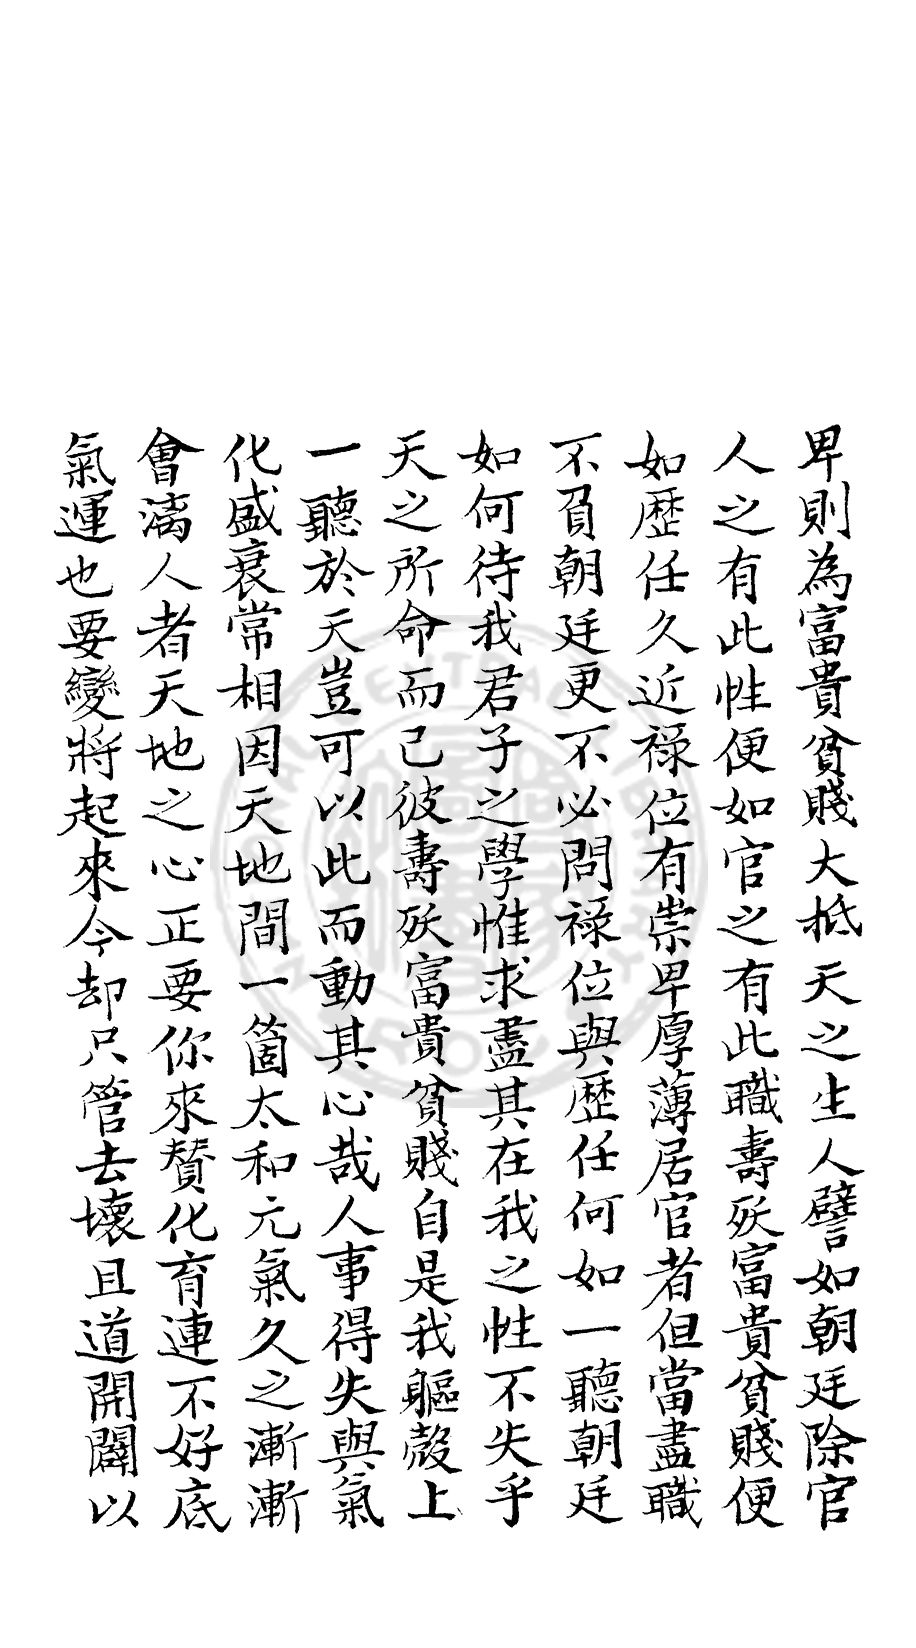 卑則為富貴貧賤大抵天之生人譬如朝廷除官
人之有此性便如官之有此職壽殀富貴貧賤便
如歷任久近祿位有崇卑厚薄居官者但當盡職
不負朝廷更不必問祿位與歷任何如一聽朝廷
如何待我君子之學惟求盡其在我之性不失乎
天之所命而已彼壽殀富貴貧賤自是我軀殼上
一聽於天豈可以此而動其心哉人事得失與氣
化盛衰常相因天地間一箇太和元氣久之漸漸
會漓人者天地之心正要你來贊化育連不好底
氣運也要變將起來今却只管去壞且道開闢以